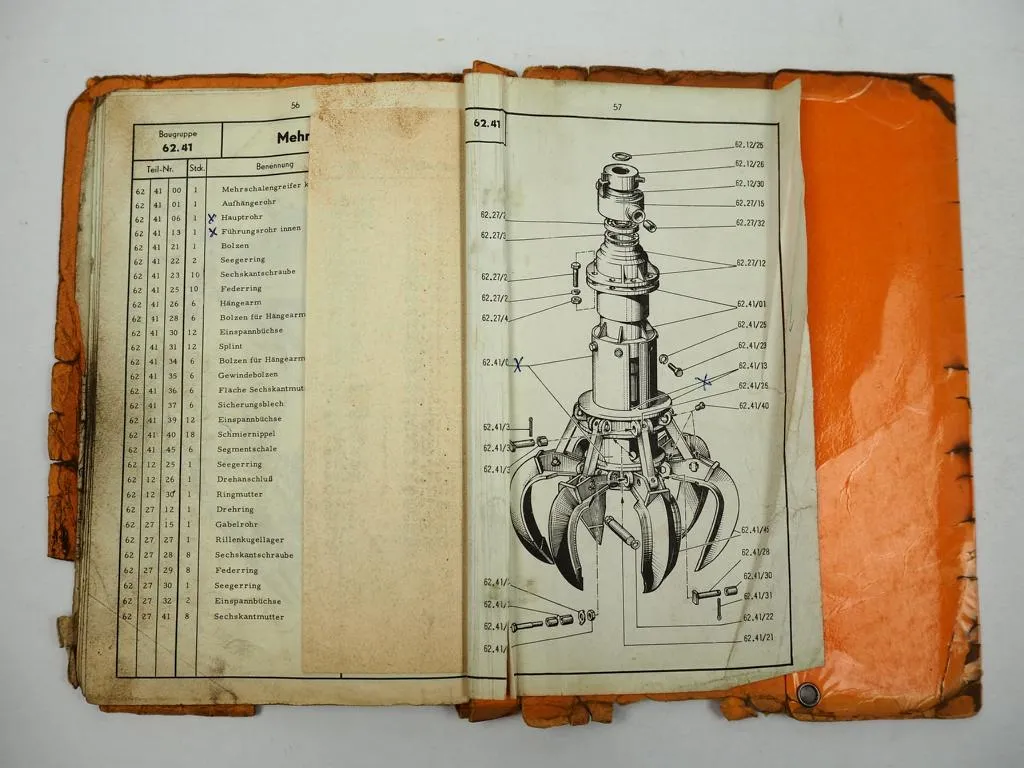 56
Baugruppe
62.41
Teil-Nr. Stck. Benennung
62 41 00 1 Mehrschalengreifer
62 41 01 1 Aufhängerohr
62 41 06 1 X Hauptrohr
62 41 13 1 X Führungsrohr innen
62 41 21 1 Bolzen
62 41 22 2 Seegerring
62 41 23 10 Sechskantschraube
62 41 25 10 Federring
62 41 26 6 Hängearm
62 41 28 6 Bolzen für Hängearm
62 41 30 12 Einspannbüchse
62 41 31 12 Splint
62 41 34 6 Bolzen für Hängearm
62 41 35 6 Gewindebolzen
62 41 36 6 Flache Sechskantmut
62 41 37 6 Sicherungsblech
62 41 39 12 Einspannbüchse
62 41 40 18 Schmiernippel
62 41 45 6 Segmentschale
62 12 25 1 Seegerring
62 12 26 1 Drehanschluß
62 12 30 1 Ringmutter
62 27 12 1 Drehring
62 27 15 1 Gabelrohr
62 27 27 1 Rillenkugellager
62 27 28 8 Sechskantschraube
62 27 29 8 Federring
62 27 30 1 Seegerring
62 27 32 2 Einspannbüchse
62 27 41 8 Sechskantmutter
57
62.41
62.12/25
62.12/26
62.12/30
62.27/15
62.27/32
62.27/12
62.41/01
62.41/25
62.41/23
62.41/13
X
62.41/26
62.41/40
62.41/45
62.41/28
62.41/30
62.41/31
62.41/22
62.41/21
62.27/2
62.27/3
62.27/2
62.27/2
62.27/4
62.41/0 X
62.41/3
62.41/3
62.41/3
62.41/
62.41/
62.41/
62.41/